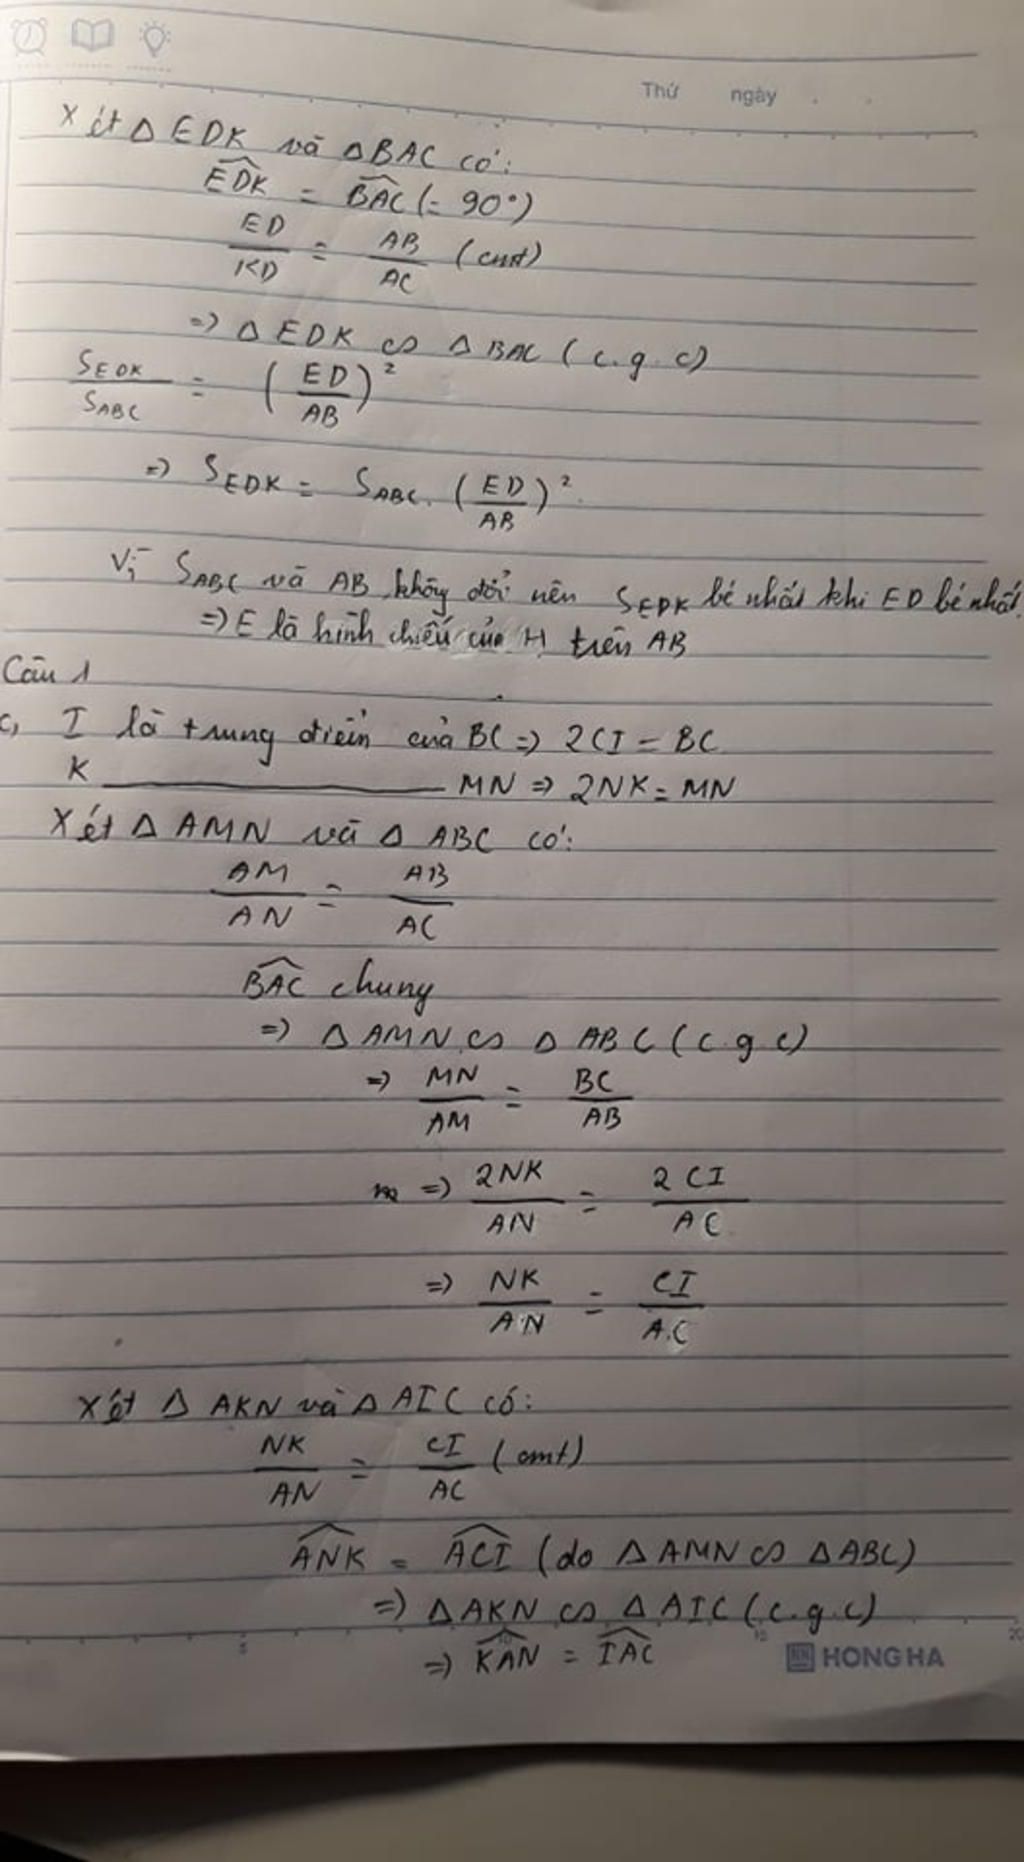 Thứ ngày
Xét Δ EDK và Δ BAC có:
$\widehat{EDK}$ = $\widehat{BAC}$ (= 90°)
$\frac{ED}{KD}$ = $\frac{AB}{AC}$ (cmt)
=> Δ EDK ∽ Δ BAC (c.g.c)
$\frac{S_{EDK}}{S_{ABC}}$ = $\left(\frac{ED}{AB}\right)^2$
=> $S_{EDK}$ = $S_{ABC}$ . $\left(\frac{ED}{AB}\right)^2$
Vì $S_{ABC}$ và AB không đổi nên $S_{EDK}$ bé nhất khi ED bé nhất
=> E là hình chiếu của H trên AB
Câu 1
c, I là trung điểm của BC => 2CI = BC
K ———— MN => 2NK = MN
Xét Δ AMN và Δ ABC có:
$\frac{AM}{AN}$ = $\frac{AB}{AC}$
$\widehat{BAC}$ chung
=> Δ AMN ∽ Δ ABC (c.g.c)
=> $\frac{MN}{AM}$ = $\frac{BC}{AB}$
=> $\frac{2NK}{AN}$ = $\frac{2CI}{AC}$
=> $\frac{NK}{AN}$ = $\frac{CI}{AC}$
Xét Δ AKN và Δ AIC có:
$\frac{NK}{AN}$ = $\frac{CI}{AC}$ (cmt)
$\widehat{ANK}$ = $\widehat{ACI}$ (do Δ AMN ∽ Δ ABC)
=> Δ AKN ∽ Δ AIC (c.g.c)
=> $\widehat{KAN}$ = $\widehat{IAC}$
5 10 15 20
HONG HA